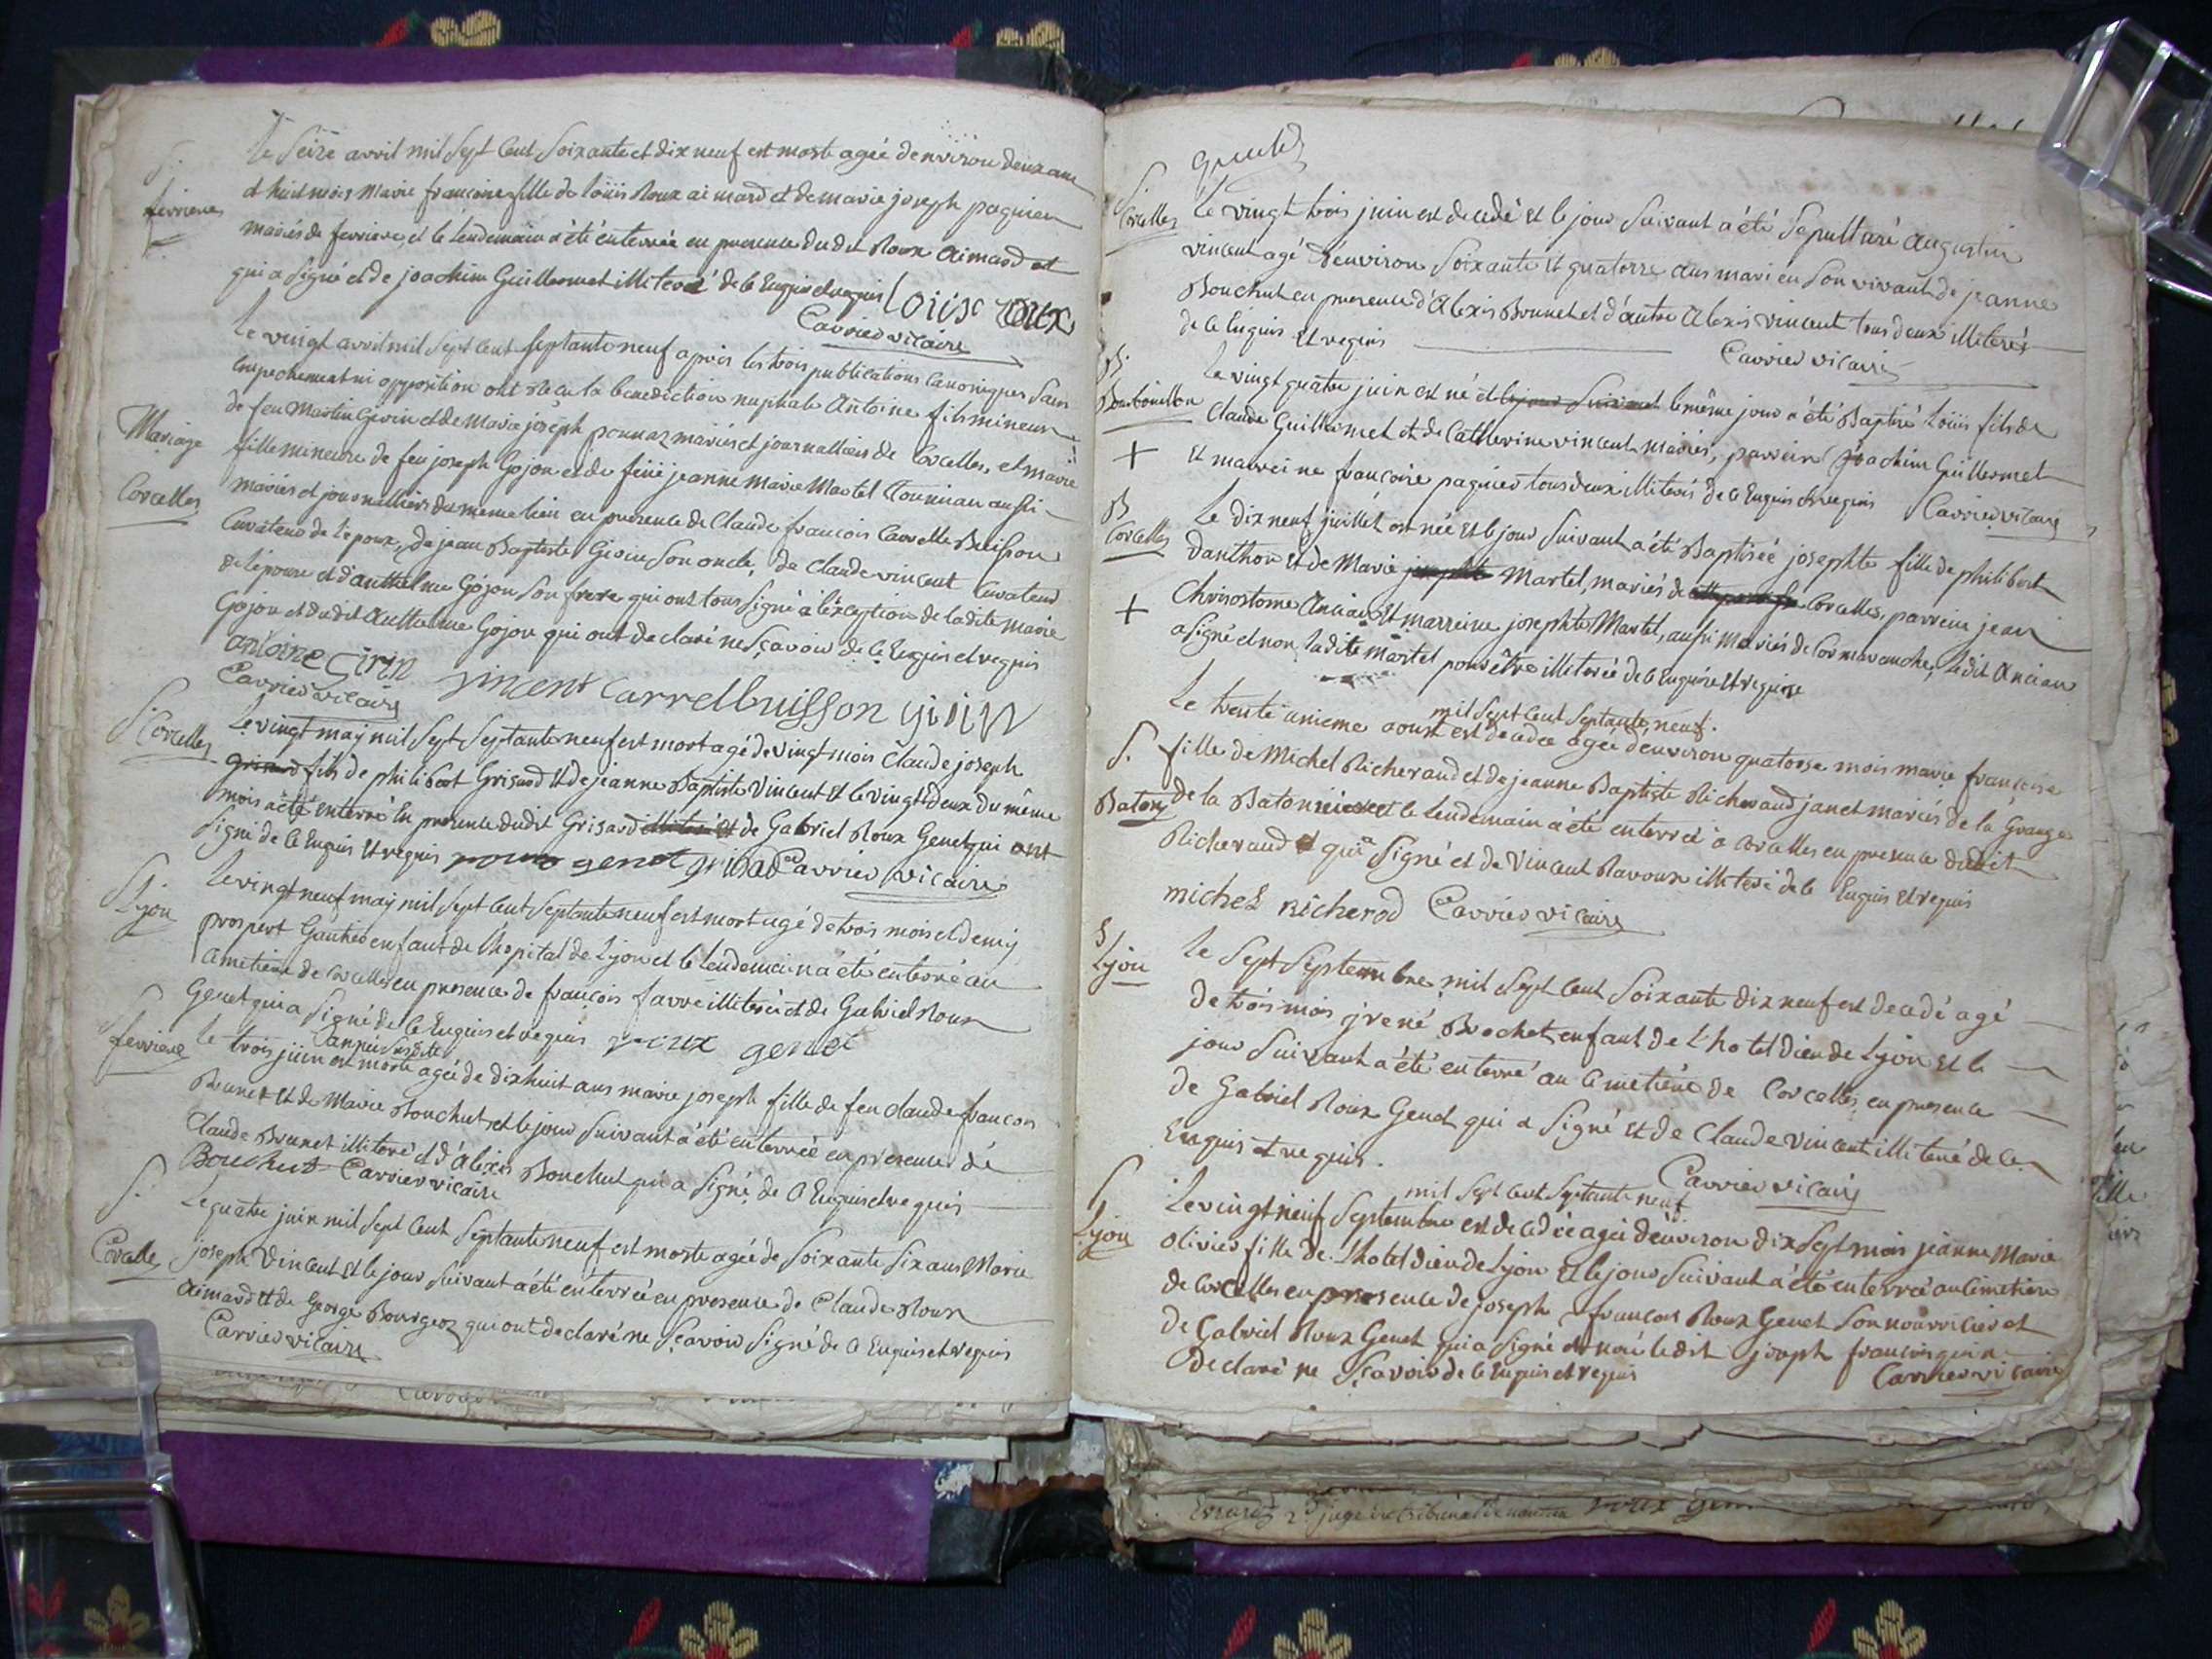 Le seize avril mil sept cent soixante et dix neuf est morte agée denviron deux ans
S.
et huit mois marie francoise fille de loüis Roux aimard et de marie joseph paquier
ferrieres
mariés de ferriere, et le lendemain a été enterrée en presence dudit Roux aimard et
qui a signé et de joachim Guillermet illiteré de ce Enquis et requis Loüis roux
Carrier vicaire
Le vingt avril mil sept cent septante neuf aprés les trois publications canoniques sans
empechement ni opposition ont recu la benediction nuptiale Antoine fils mineur
de feu Martin Girin et de Marie joseph ponnaz mariés et journalliers de Corcelles, et marie
Mariage
fille mineure de feu joseph Gojon et de feüe jeanne Marie Martel aussi
Corcelles
mariés et journalliers du meme lieu en presence de Claude francois Carrelle Buisson
Curateur de l'epoux, de jean Baptiste Girin son oncle, de Claude vincent Curateur
de l'épouse et d'anthelme Gojon son frere qui ont tous signé à l'exception de ladite marie
Gojon et dudit Anthelme Gojon qui ont declaré ne sçavoir de ce Enquis et requis
antoine Girin vincent carrelbuisson girin
Carrier vicaire
S.
Corcelles
Le vingt may mil sept septante neuf est mort agé de vingt mois Claude joseph
grisard fils de philibert Grisard et de jeanne Baptiste Vincent et le vingt deux du même
mois a été enterré en presence dudit Grisard illiteré et de Gabriel Roux Genet qui ont
signé de ce Enquis et requis roux genet grisard Carrier vicaire
S.
Lyon
Le vingt neuf may mil sept cent septante neuf est mort agé de trois mois et demÿ
prospert Gautier enfant de l'hopital de Lyon et le lendemain a été enterré au
cimetiere de corcelles en presence de francois favre illiteré et de Gabriel Roux
Genet qui a signé de ce Enquis et requis roux genet
S.
ferriere
année susdite
le trois jüin est morte agée de dixhuit ans marie joseph fille de feu claude francois
Brunet et de Marie Bouchut, et le jour suivant a été enterrée en presence de
Claude Brunet illiteré et d'Alexis Bouchut qui a signé de ce Enquis et requis
Bouchut Carrier vicaire
S.
Le quatre juin mil sept cent septante neuf est morte agée de soixante six ans Marie
Corcelle
joseph Vincent et le jour suivant a été enterrée en presence de Claude Roux
aimard et de George Bourgeoz qui ont declaré ne sçavoir signé de ce Enquis et requis
Carrier vicaire
S.
Corcelles
Le vingt trois juin est decedé et le jour suivant a été sepulturé Augustin
vincent agé d'environ soixante et quatorze ans mari en son vivant de jeanne
Bouchut en presence d'Alexis Brunet et d'autre Alexis vincent tous deux illiterés
de ce Enquis et requis Carrier vicaire
B.
Le vingt quatre juin est né et le jour suivant le même jour a été Baptisé Loüis fils de
Claude Guillermet et de Catherine vincent mariés, parrein joachim Guillermet
+
et marreine francoise paquier tous deux illiterés de ce Enquis et requis Carrier vicaire
B
Corcelles
Le dix neuf juillet est née et le jour suivant a été Baptisée josephte fille de philibert
danthon et de Marie josephte Martel, mariés de Corcelles, parrein jean
+
Chrisostome Ancian et marreine josephte Martel, aussi mariés de Cormaranche, ledit Ancian
a signé et non ladite Martel pour être illiterée de ce Enquise et requise
mil sept cent septante neuf.
Le trente unieme aoust est decedée agée d'environ quatorze mois marie francoise
S.
fille de Michel Richeraud et de jeanne Baptiste Richeraud janet mariés de la Grange
Batony
de la Batoniere et le lendemain a été enterrée a corcelles en presence dudit
Richeraud et qui a signé et de Vincent Ravoux illiteré de ce Enquis et requis
michel richerod Carrier vicaire
S
Lyon
Le sept septembre mil sept cent soixante dix neuf est decedé agé
de trois mois jrené Brochet, enfant de L'hotel dieu de Lyon et le
jour suivant a été enterré au cimetiere de Corcelles, en presence
de Gabriel Roux Genet qui a signé et de Claude vincent illiteré de ce
Enquis et requis. Carrier vicaire
S.
Lyon
mil sept cent septante neuf
Le vingt neuf septembre est decedée agée d'environ dix sept mois jeanne Marie
olivier fille de L'hotel dieu de Lyon et le jour suivant a été enterrée au cimetiere
de Corcelles en presence de joseph francois Roux Genet son nourricier et
de Gabriel Roux Genet qui a signé et non ledit joseph francois
declaré ne sçavoir de ce Enquis et requis Carrier vicaire